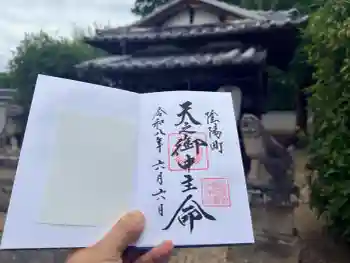 陰陽町
天之御中主命
令和八年 六月六日